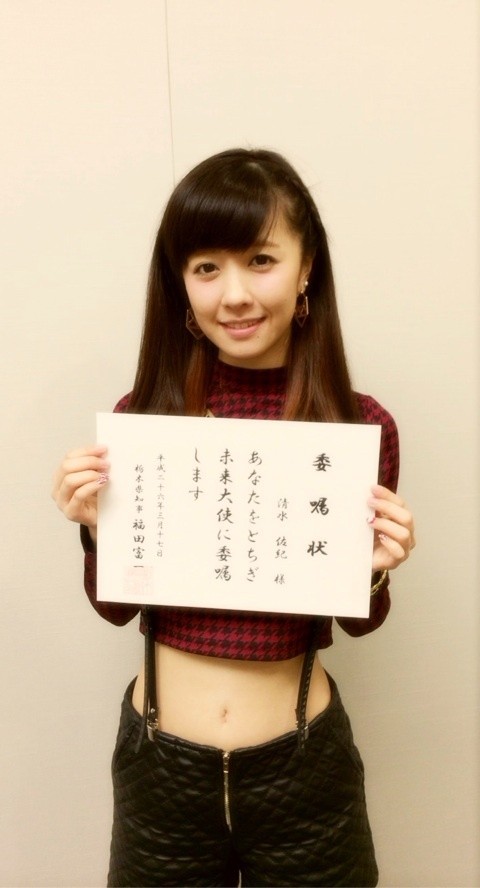 委嘱状
清水 佐紀 様
あなたをとちぎ
未来大使に委嘱
します
平成二十六年三月十七日
栃木県知事 福田富一